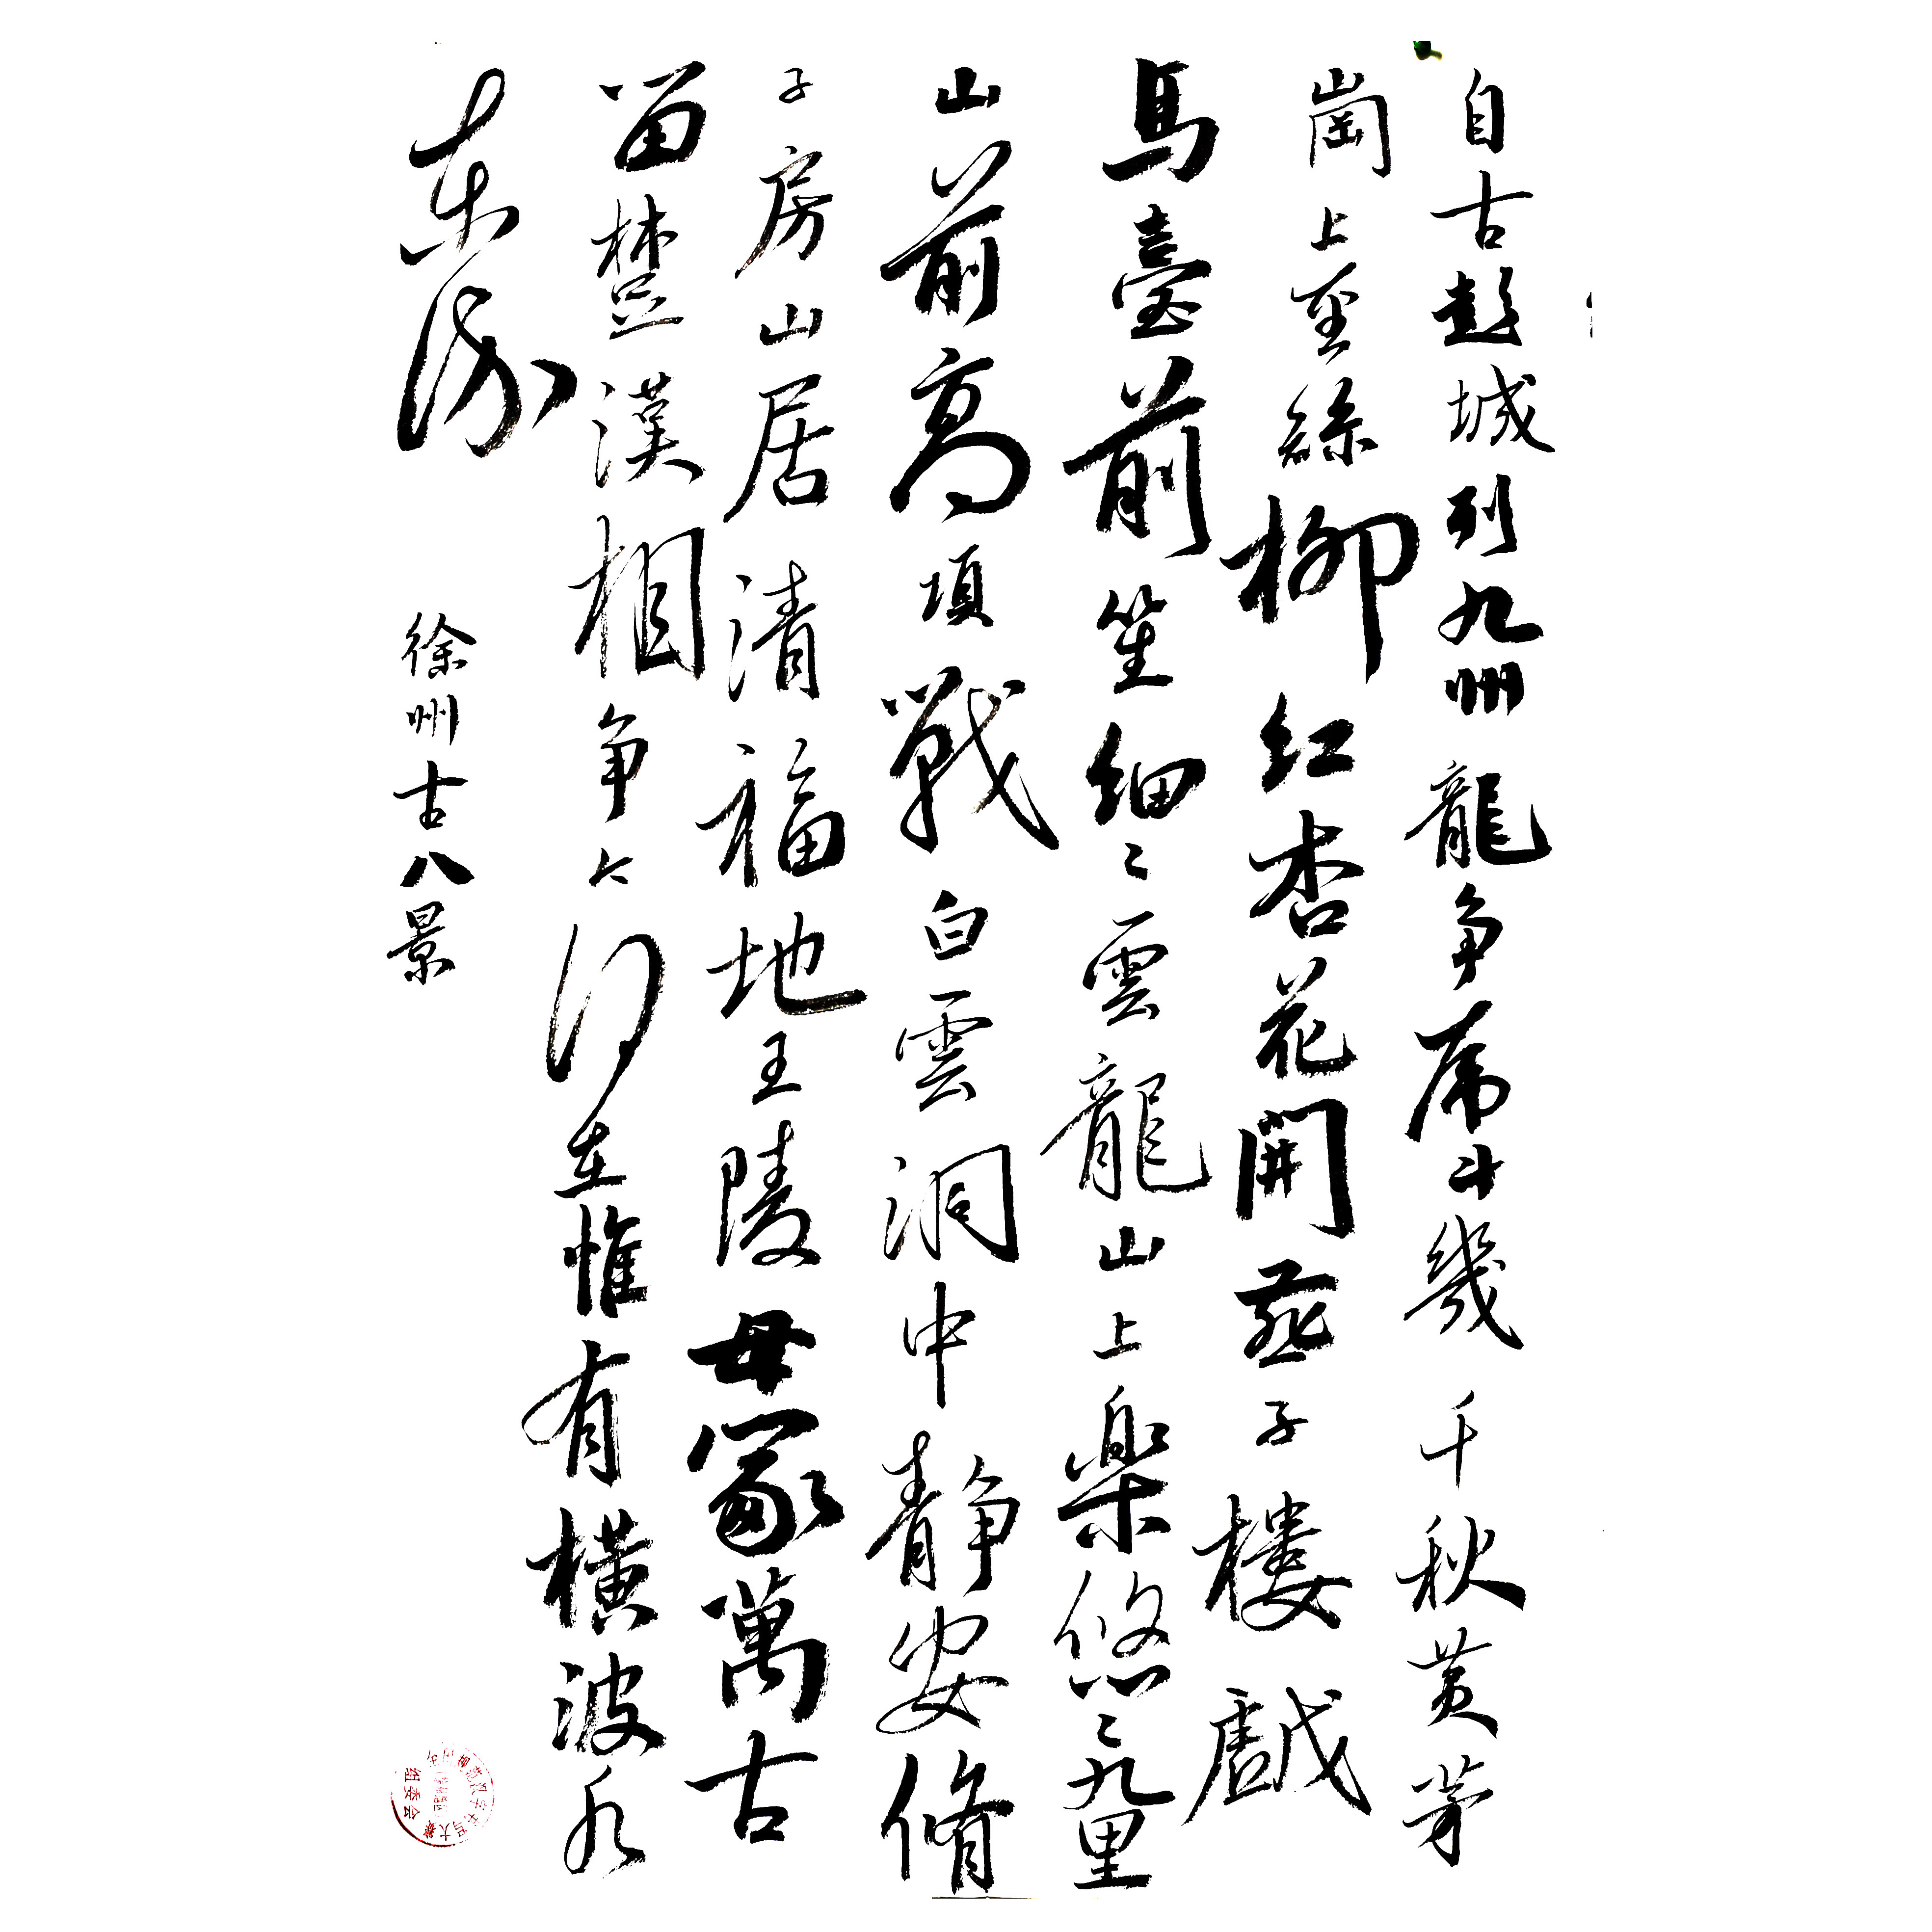 自古彭城列九州龍争虎斗幾千秋黄茅
崗上垂絲柳红杏花開燕子樓戲
馬臺前笙细〻雲龍山上樂悠〻九里
山前髙項戰白雲洞中静安脩
子房山居清福地王陵母冢萬古
留楚漢相争今何在惟有横波水
東流
徐州古八景
組委会